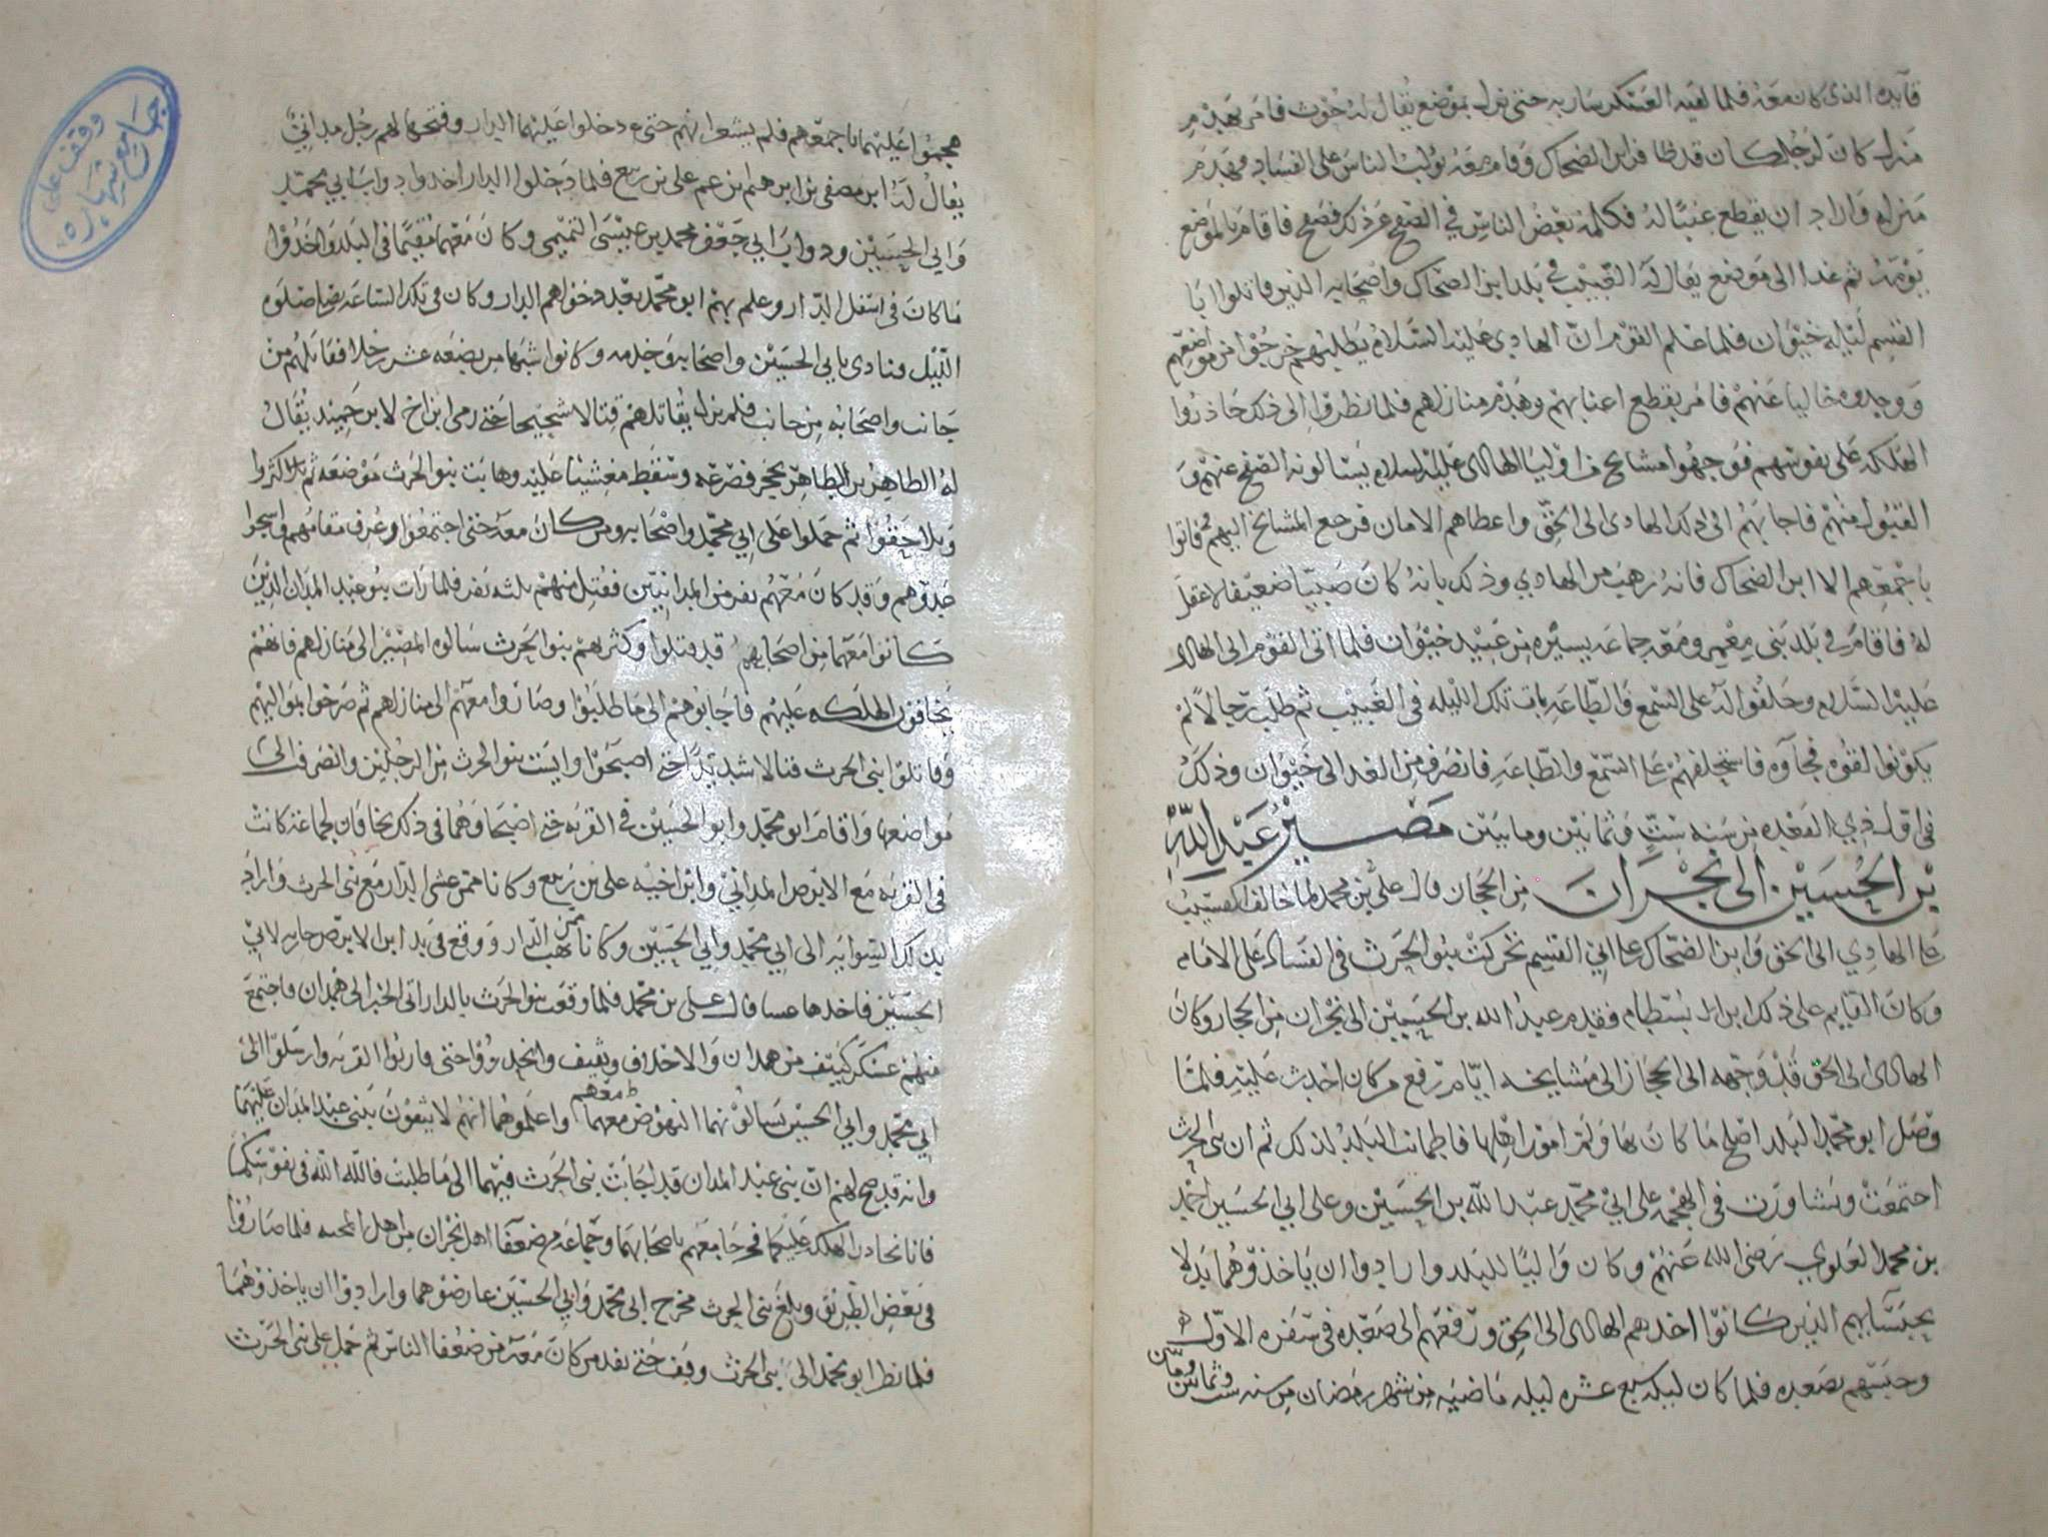 قايده الذي كان معه فلما لقيه العسكر سار به حتى نزل بموضع يقال له حوث فامر بهدم
منزل كان لرجل كان قد ظافر ابن الضحاك وقام معه يؤلب الناس على الفساد فهدم
منزله واراد ان يقطع عنبًا له فكلمه بعض الناس في الصفح عن ذلك فصفح فاقام بالموضع
يومه ثم غدا الى موضع يقال له الغبيب في بلد ابن الضحاك واصحابه الذين قاتلوا ابا
القسم ليله خيوان فلما علم القوم ان الهادي عليه السلام يطلبهم خرجوا من مواضعهم
ووجدوه خاليا عنهم فامر بقطع اعنابهم وهدم منازلهم فلما نظروا الى ذلك حاذروا
الهلكه على نفوسهم فوجهوا مشايخ من اوليا الهادي عليه السلام يسالونه الصفح عنهم و
القبول منهم فاجابهم الى ذلك الهادي الى الحق واعطاهم الامان فرجع المشايخ اليهم فاتوا
باجمعهم الا ابن الضحاك فانه رهب من الهادي وذلك بانه كان صبيًا ضعيفا لا عقل
له فاقام في بلد بني معمر ومعه جماعه يسيره من عبيد خيوان فلما اتى القوم الى الهادي
عليه السلام وحلفوا له على السمع والطاعه بات تلك الليله في الغبيب ثم طلب رجالا لم
يكونوا لقوه فجاوه فاستحلفهم على السمع والطاعه فانصرف من الغد الى خيوان وذلك
في اول ذي القعده من سنه ست وثمانين ومايتين مصير عبد الله
بن الحسين الى نجران من الحجاز قال علي بن محمد لما خالف اكعسب
على الهادي الى الحق وابن الضحاك على ابي القسم تحركت بنو الحرث في الفساد على الامام
وكان القايم على ذلك ابن بسطام فقدم عبد الله بن الحسين الى نجران من الحجاز وكان
الهادي الى الحق قد وجهه الى الحجاز الى مشايخه ايام رفع من كان احدث عليه فلما
وصل ابو محمد البلد اصلح ما كان بها ولم امور اهلها فاطمانت البلد لذلك ثم ان بني الحرث
اجتمعت وتشاورت في الهجمه على ابي محمد عبد الله بن الحسين وعلى ابي الحسين احمد
بن محمد العلوي رضى الله عنهم وكان واليًا للبلد وارادوا ان ياخذوهما بدلا
بحبسايهم الذين كانوا اخذهم الهادي الى الحق ورفعهم الى صعده في سفره الاول
وحبسهم بصعده فلما كان ليله سبع عشره ليله ماضيه من شهر رمضان من سنه ست وثمانين ومايتين
هجموا عليهما باجمعهم فلم يشعرا بهم حتى دخلوا عليهما الدار وفتحها لهم رجل مداني
يقال له ابن مصفى بن ابرهيم بن عم علي بن ربيع فلما دخلوا الدار اخذوا دواب ابي محمد
وابي الحسين ودواب ابي جعفر محمد بن عبيسى التميمي وكان معهما مقيمًا في البلد واخذوا
ما كان في اسفل الدار وعلم بهم ابو محمد بعد دخولهم الدار وكان في تلك الساعه يصلي صلوه
الليل فنادى بابي الحسين واصحابه وخدمه وكانوا شبها من بضعه عشر رجلا فقاتلهم من
جانب واصحابه من جانب فلم يزل يقاتلهم قتالا شحيحا حتى رمى ابن اخ لابن حميد يقال
له الطاهر بن الطاهر بحجر فصرعه وسقط مغشيًا عليه وهابت بنو الحرث موضعه ثم تكاثروا
وتلاحقوا ثم حملوا على ابي محمد واصحابه ومن كان معه حتى اجتمعوا وعرف مقامهم
حدوهم وقد كان معهم نفر من المدانيين فقتل منهم ثلثه نفر فلما رات بنو عبد المدان الذين
كانوا معهما من اصحابهم قد قتلوا وكثر بهم بنو الحرث سالوه المصير الى منازلهم فانهم
يخافون الهلكه عليهم فاجابوهم الى ما طلبوا وصاروا معهم الى منازلهم ثم صرخوا بمواليهم
وقاتلوا بني الحرث قتالا شديدًا حتى اصبحوا وايست بنو الحرث من الرجلين وانصرف الى
مواضعها واقام ابو محمد وابو الحسين في القريه حتى اضحيا وهما في ذلك يخافان لجماعه كانت
في القريه مع الابرص المداني وابن اخيه علي بن ربيع وكانا ممن عشى الدار مع بني الحرث وارادا
بذلك التسوايه الى ابي محمد وابي الحسين وكانا ممن نهب الدار ووقع في يد ابن الابرص جاريه لابي
الحسين فاخذها عسا قال علي بن محمد فلما وقعت بنو الحرث بالدار اتى الخبر الى همدان فاجتمع
منهم عسكر كثيف من همدان والاحلاف وثقيف وانجدوا حتى قاربوا القريه وارسلوا الى
ابي محمد وابي الحسين يسالونهما النهوض معهما معهم واعلموهما انهم لا يثقون ببني عبد المدان عليهما
وانه قد صح لهم ان بني عبد المدان قد اجابت بني الحرث فيهما الى ما طلبت فالله الله في نفوسكما
فانا نحاذر الهلكه عليكما فخرجا معهم باصحابهما وجماعه من ضعفا اهل نجران من اهل المحبه فلما صاروا
في بعض الطريق وبلغ بني الحرث مخرج ابي محمد وابي الحسين عارضوهما وارادوا ان ياخذوهما
فلما نظر ابو محمد الى بني الحرث وقف حتى نفد من كان معه من ضعفا الناس ثم حمل على بني الحرث
وقف على
جامع شهاره